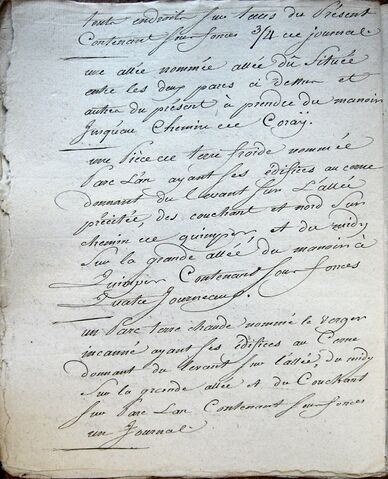 touts endroits sur terres du Présent
Contenant sous fonces 3/4 de journal.
une allée nommée allée du Situé
entre les deux parcs cÿ dessus et
autres du présent à prendre du manoir
Jusqu'au Chemin de Coraÿ.
une Piece de terre froide nommée
Parc Lan ayant ses édifices au cerne
donnant du levant sur L'allée
précitée, des couchant et nord sur
chemin de quimper et du midy
Sur la grande allée du manoir à
Quimper Contenant sous fonces
Quatre Journeaux.
un Parc terre chaude nommé le verger
ayant ses édifices au Cerne
donnant du levant sur l'allée, du midy
Sur la grande allée et du Couchant
sur Parc Lan Contenant sous fonces
un Journal.